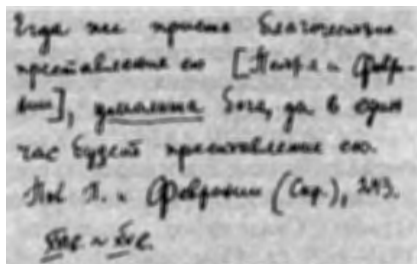 Егда же приспе благочестное
преставление ею [Петра и Февро-
нии], умолиша бога, да в един
час будетъ преставление ею.
Пов. П. и Февронии (Скр.), 243.
XVIIв. ~ XVIв.